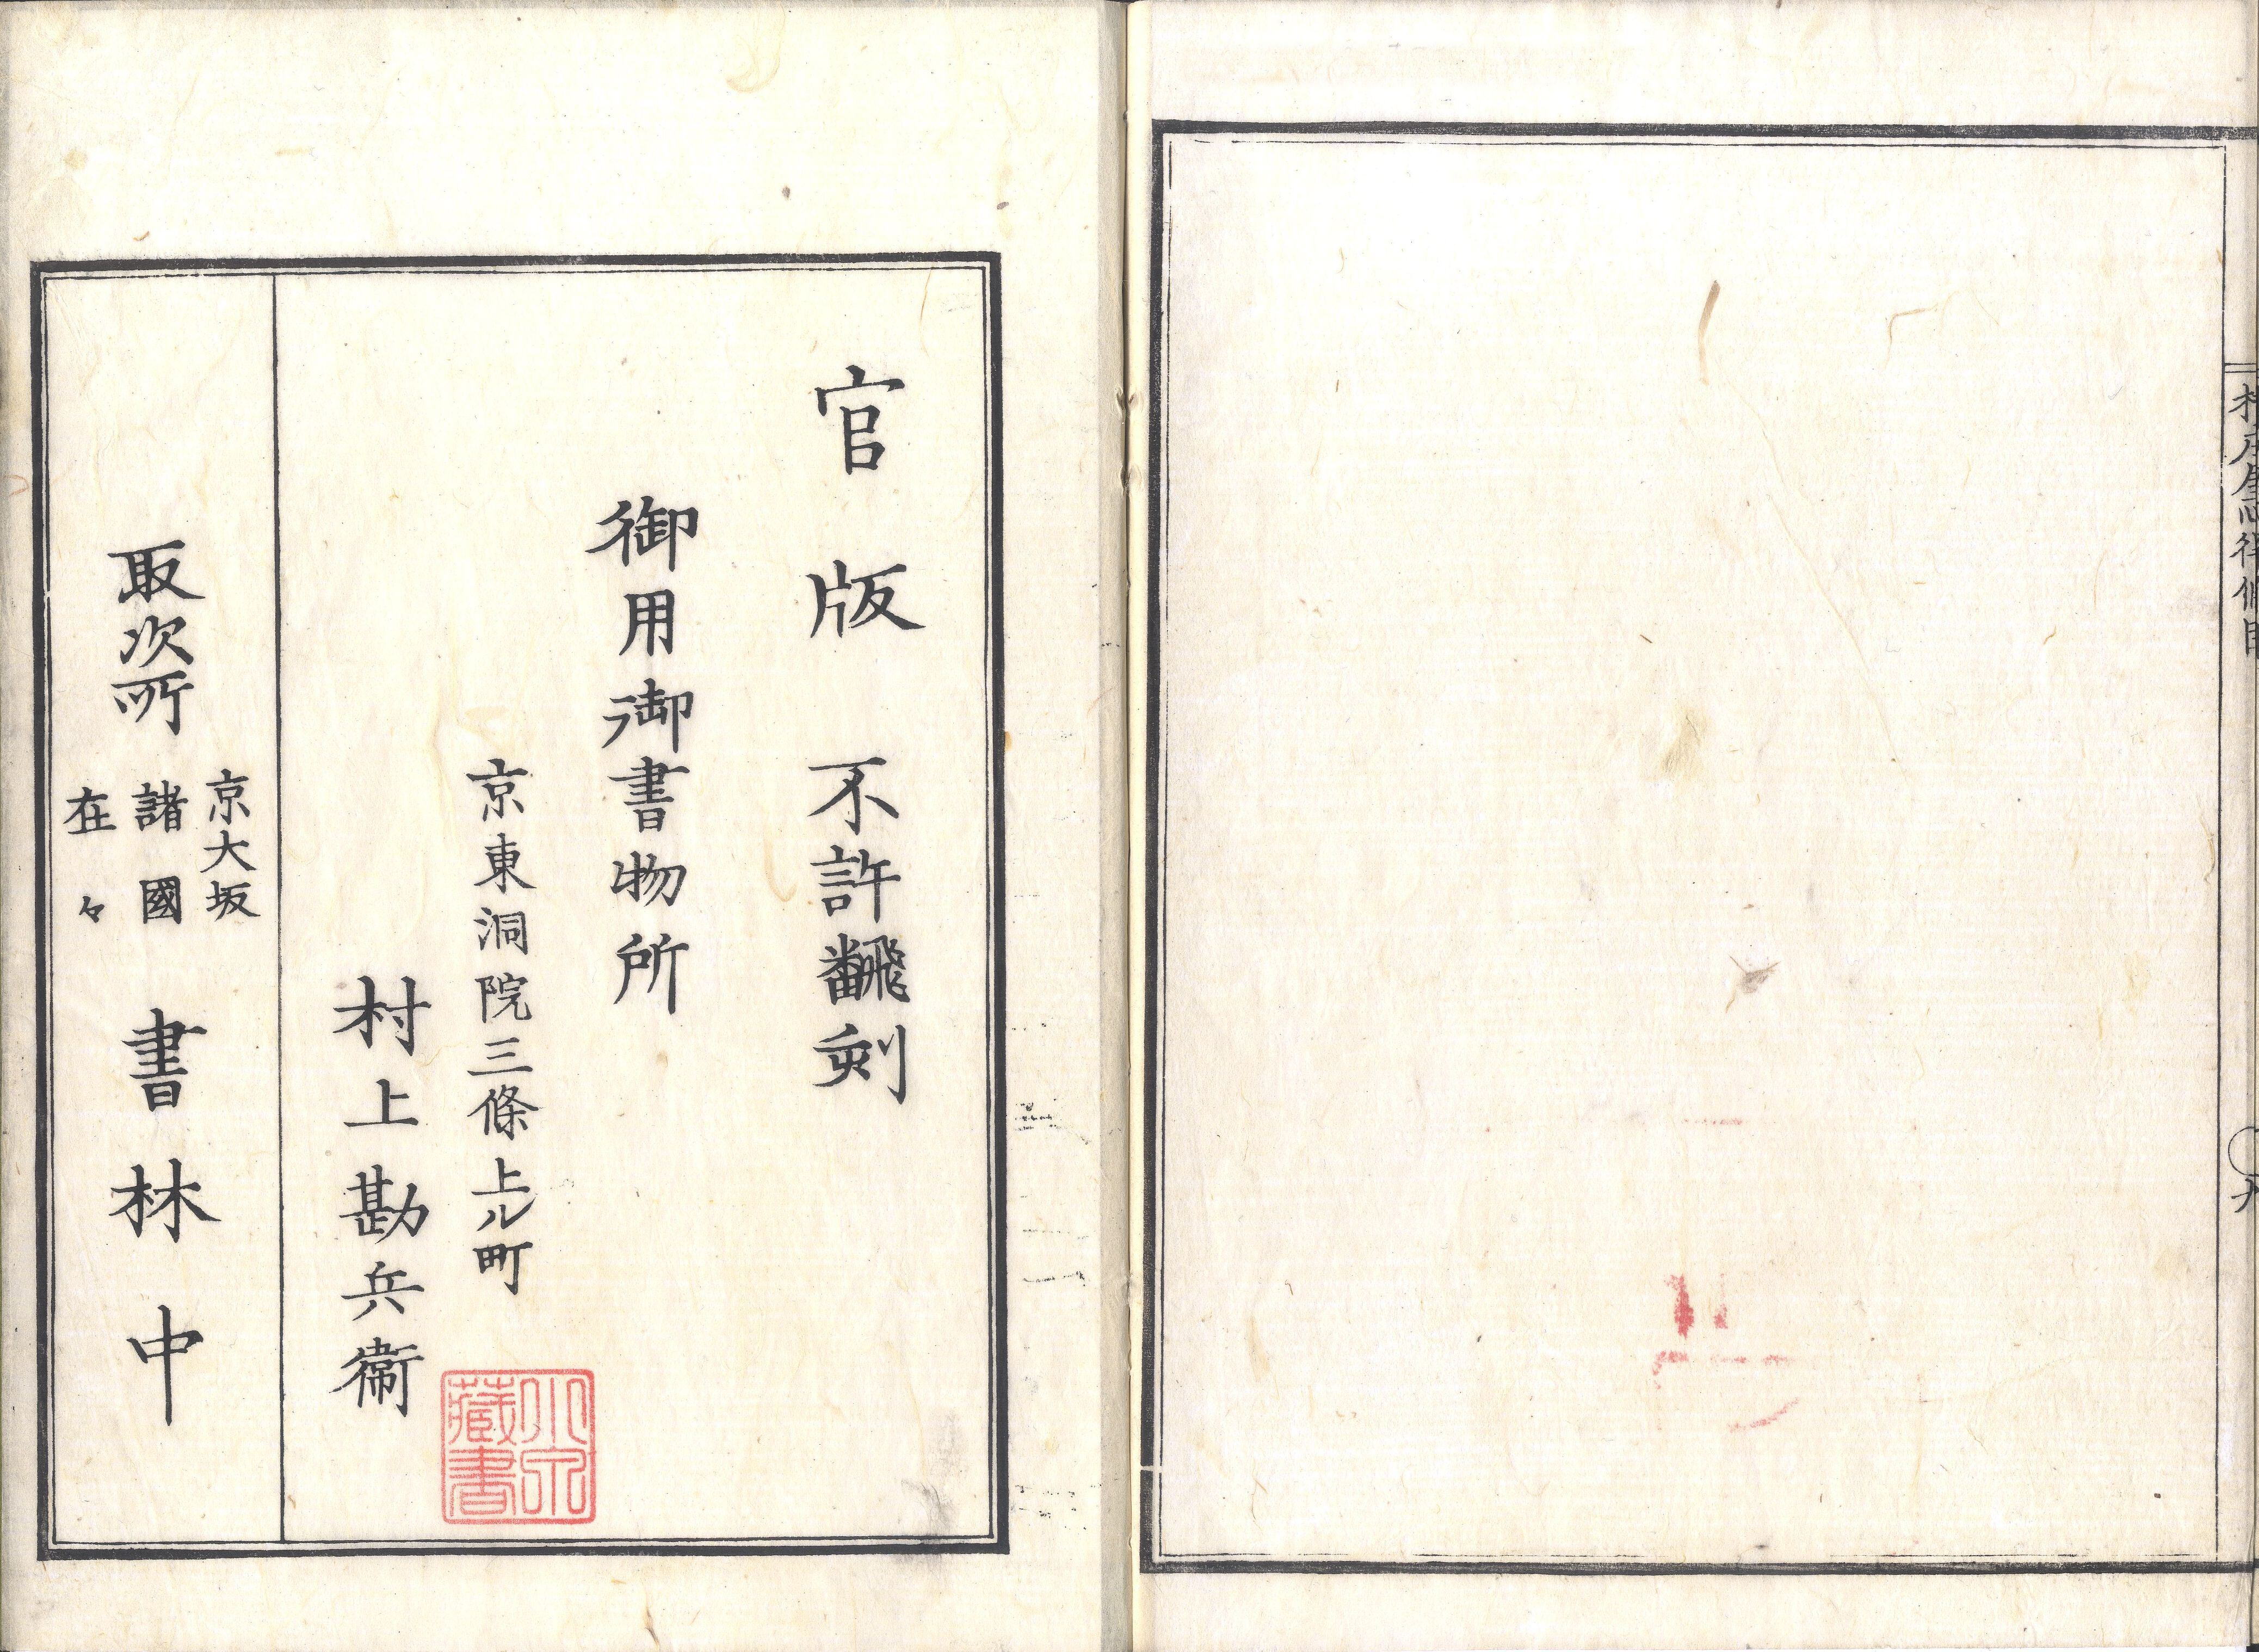 村庄屋心得條目
官版 不許飜刻
御用御書物所
京東洞院三條上ル町
村上勘兵衞
取次所
京大坂
諸國
在々
書林中
小泉
藏書